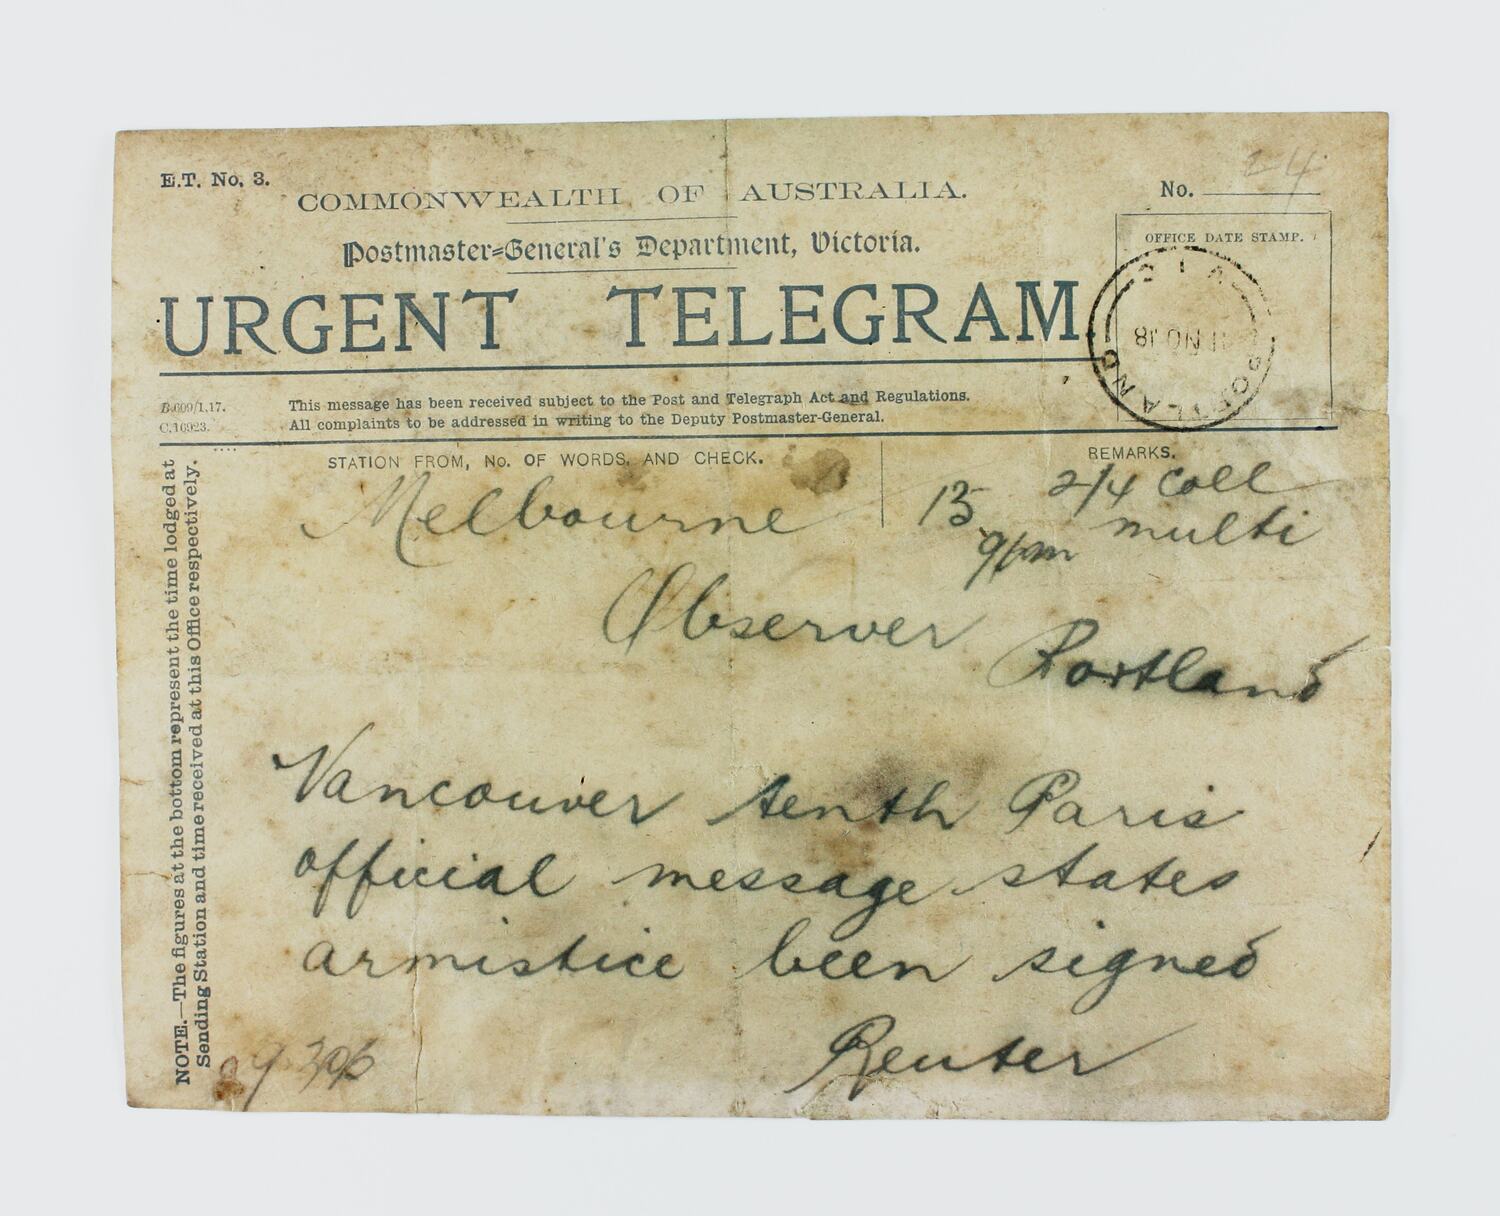 E.T. No. 3.
COMMONWEALTH OF AUSTRALIA.
No. 24
Postmaster-General's Department, Victoria.
OFFICE DATE STAMP.
URGENT TELEGRAM.
11 NO 18
PORTLAND
B.609/1.17.
C.16923.
This message has been received subject to the Post and Telegraph Act and Regulations.
All complaints to be addressed in writing to the Deputy Postmaster-General.
STATION FROM, No. OF WORDS, AND CHECK.
REMARKS.
Melbourne 13 2/4 Coll
9pm multi
Observer Portland
Vancouver tenth Paris
official message states
armistice been signed
Reuter
NOTE.—The figures at the bottom represent the time lodged at
Sending Station and time received at this Office respectively.